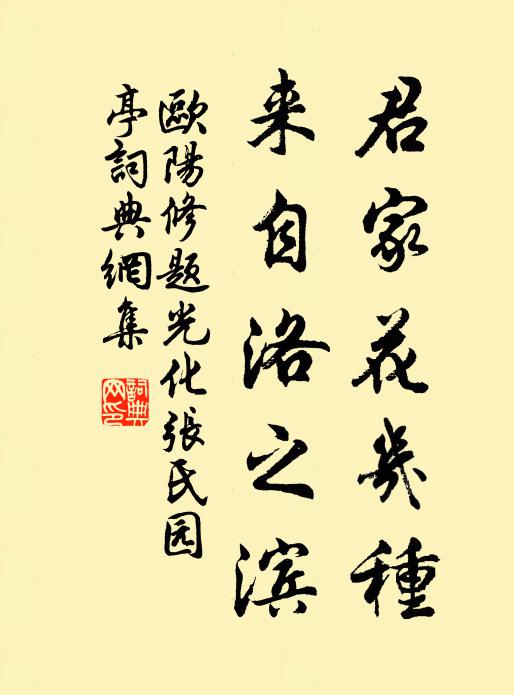 君家花幾種
来自洛之滨
歐陽修题光化張氏园
亭詞典網集
詞典
网印